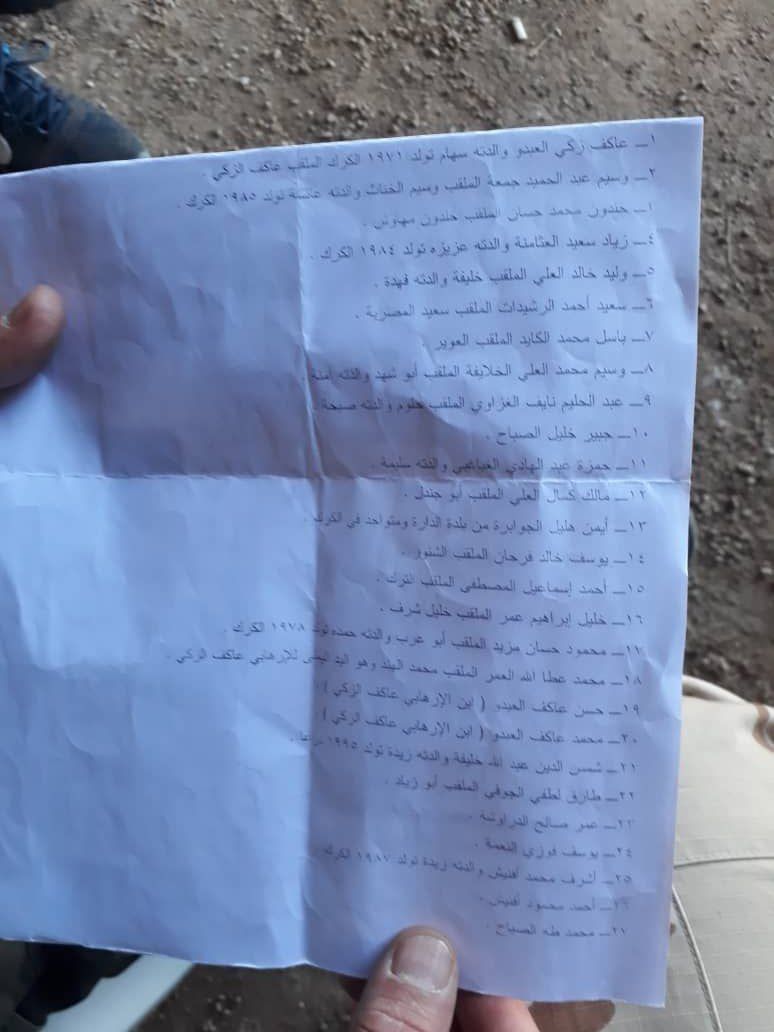 ١ـ عاكف زكي العبدو والدته سهام تولد ١٩٧١ الكرك الملقب عاكف الزكي .
٢ـ وسيم عبد الحميد جمعة الملقب وسيم الخناث والدته عائشة تولد ١٩٨٥ الكرك .
حندون محمد حسان الملقب حندون مهاوش .
٤ـ زياد سعيد العثامنة والدته عزيزه تولد ١٩٨٤ الكرك .
٥ـ وليد خالد العلي الملقب خليفة والدته فهدة .
٦ـ سعيد أحمد الرشيدات الملقب سعيد المصرية .
٧ـ باسل محمد الكايد الملقب العوير
٨ـ وسيم محمد العلي الخلايفة الملقب أبو شهد والدته آمنة .
٩ـ عبد الحليم نايف الغزاوي الملقب حلوم والدته صبحة .
١٠ـ جبير خليل الصباح .
١١ـ حمزة عبد الهادي والدته سليمة .
١٢ـ مالك كمال العلي الملقب أبو جندل .
١٣ـ أيمن هليل الجوابرة من بلدة الدارة ومتواجد في الكرك .
١٤ـ يوسف خالد فرحان الملقب الشنور .
١٥ـ أحمد إسماعيل المصطفى الملقب الترك .
١٦ـ خليل إبراهيم عمر الملقب خليل شرف .
١٧ـ محمود حسان مزيد الملقب أبو عرب والدته حمده تولد ١٩٧٨ الكرك .
١٨ـ محمد عطا الله العمر الملقب محمد الهند وهو اليد اليمنى للإرهابي عاكف الزكي .
١٩ـ حسن عاكف العبدو ( ابن الإرهابي عاكف الزكي ) .
٢٠ـ محمد عاكف العبدو ( ابن الإرهابي عاكف الزكي )
٢١ـ شمس الدين عبد الله خليفة والدته زيدة تولد ١٩٩٥ درعا .
٢٢ـ طارق لطفي الجوفي الملقب أبو زياد .
٢٣ـ عمر صالح الدراوشة .
٢٤ـ يوسف فوزي النعمة .
٢٥ـ أشرف محمد أفنيش والدته زيدة تولد ١٩٨٧ الكرك .
٢٦ـ أحمد محمود أفنيش .
٢٧ـ محمد طه الصباح .